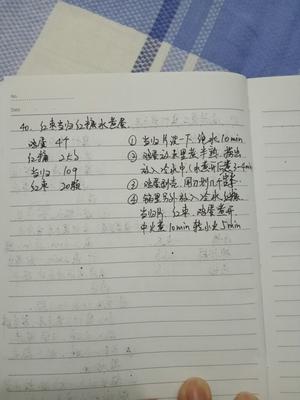 No.
Date
40. 红枣当归红糖水煮蛋
鸡蛋 4个
红糖 25g
当归 10g
红枣 20颗
① 当归片洗一下 泡水10min
② 鸡蛋放水里煮半熟 捞出
放入冷水中(水煮开后煮3-4min
③ 鸡蛋剥壳 用刀划几下
④ 锅里另外放入冷水 红糖
当归片 红枣 鸡蛋煮开
中火煮10min 转小火5min